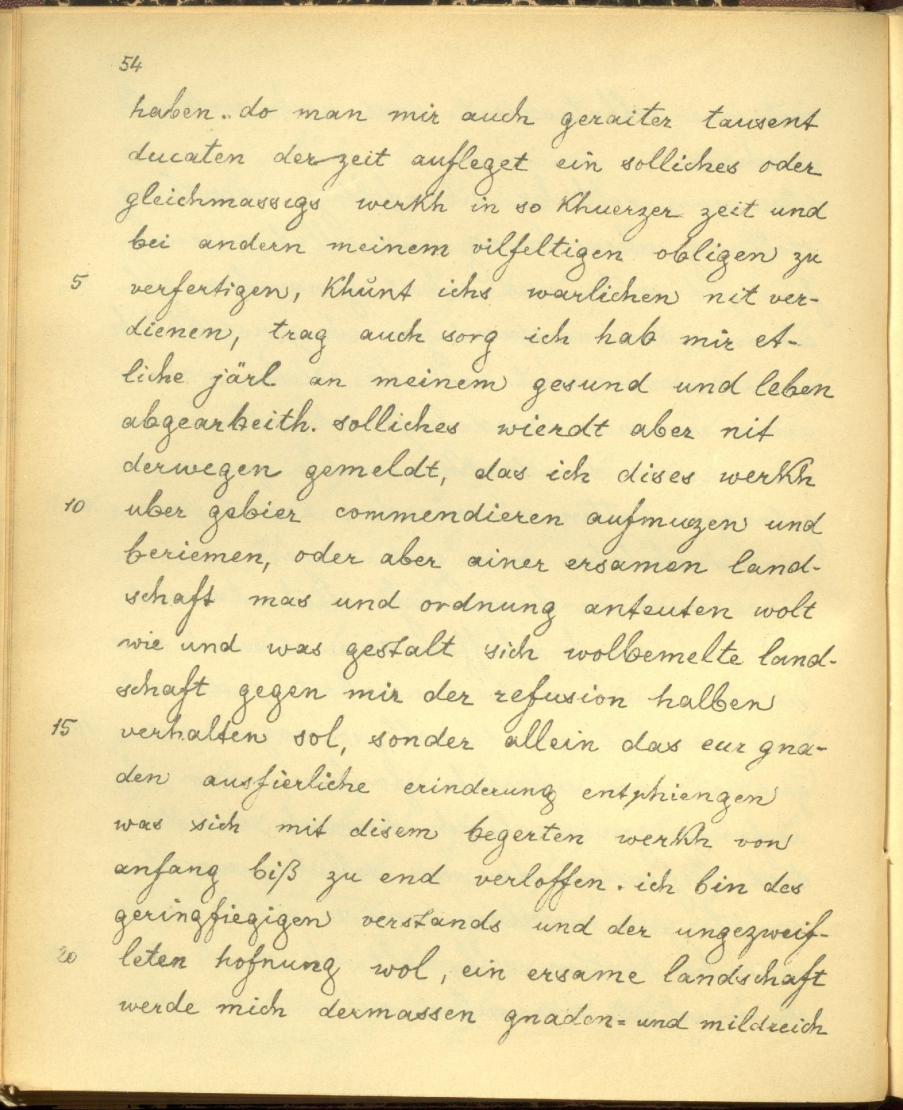 54
haben. do man mir auch geraiter tausent
ducaten der zeit aufleget ein solliches oder
gleichmassigs werkh in so khuerzer zeit und
bei andern meinem vilfeltigen obligen zu
5 verfertigen, khünt ichs warlichen nit ver-
dienen, trag auch sorg ich hab mir et-
liche järl an meinem gesund und leben
abgearbeith. solliches wierdt aber nit
derwegen gemeldt, das ich dises werkh
10 uber gebier commendieren aufmuzen und
beriemen, oder aber ainer ersamen land-
schaft mas und ordnung anteuten wolt
wie und was gestalt sich wolbemelte land-
schaft gegen mir der refusion halben
15 verhalten sol, sonder allein das eur gna-
den ausfierliche erinderung entphiengen
was sich mit disem begerten werkh von
anfang biß zu end verloffen. ich bin des
geringfiegigen verstands und der ungezweif-
20 leten hofnung wol, ein ersame landschaft
werde mich dermassen gnaden= und mildreich